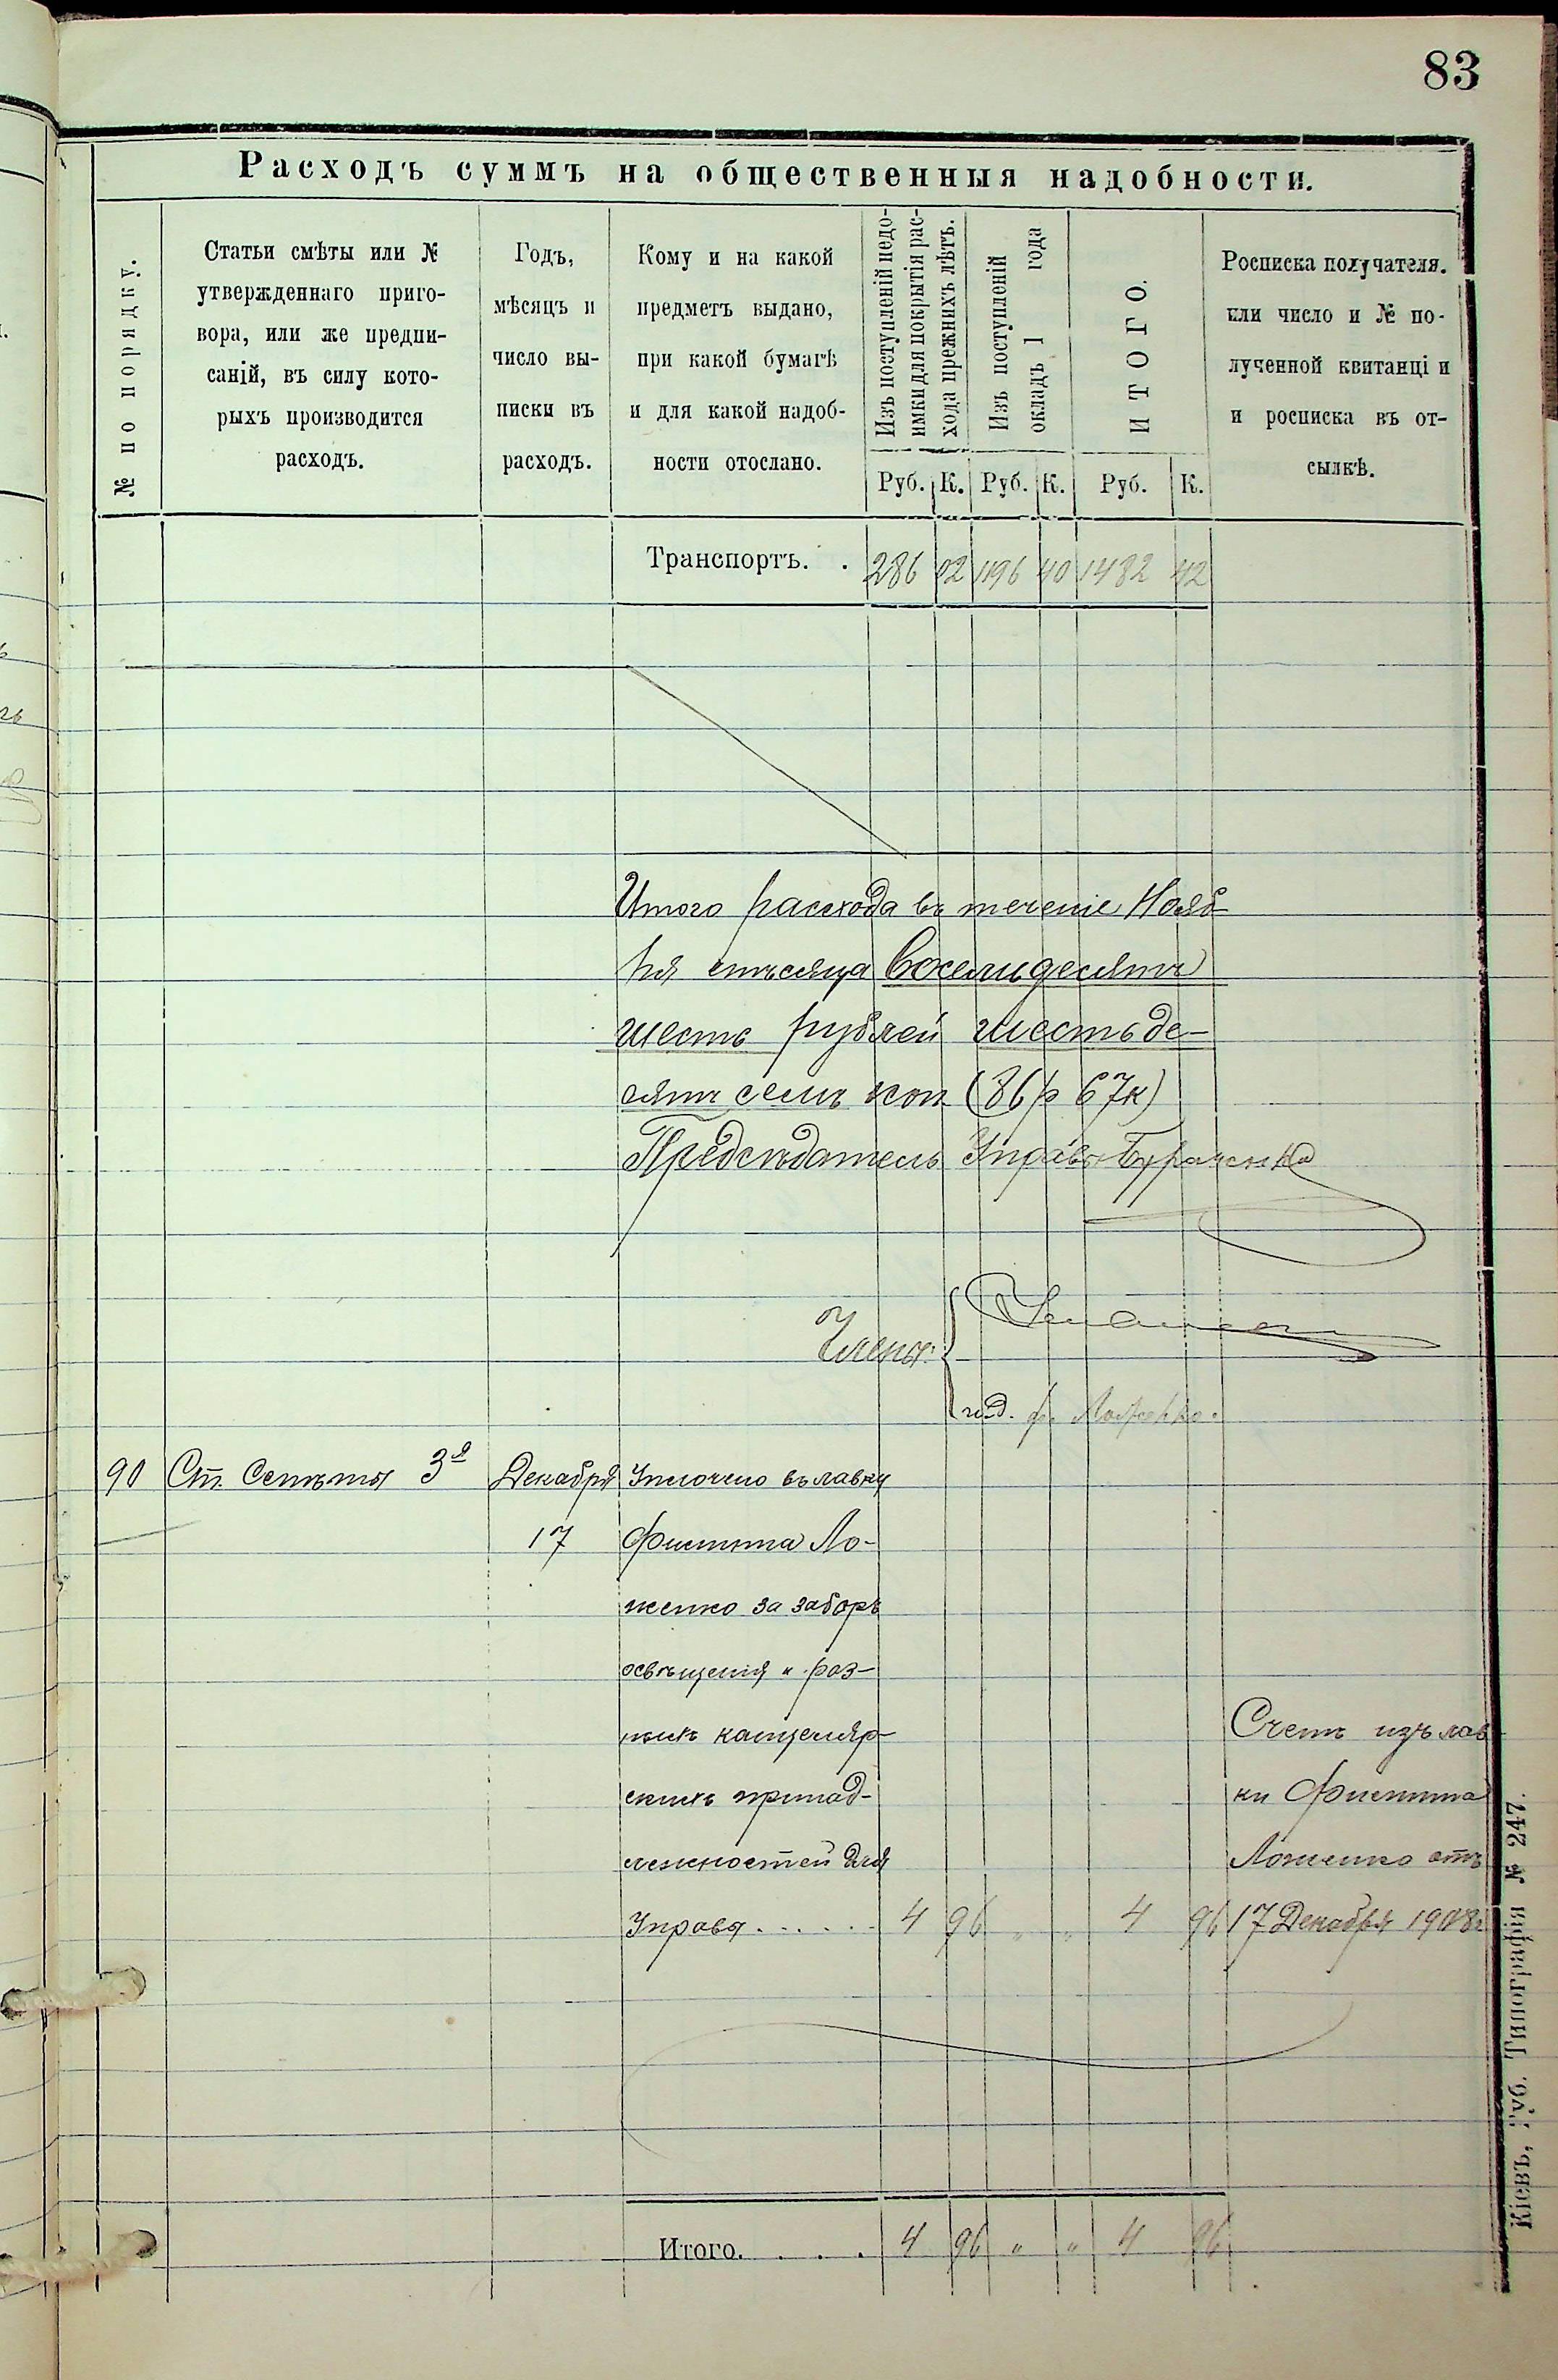 83
Расходъ суммъ на общественныя надобности.
№ по порядку.
Статьи смѣты или №
утвержденнаго приго-
вора, или же предпи-
саній, въ силу кото-
рыхъ производится
расходъ.
Годъ,
мѣсяцъ и
число вы-
писки въ
расходъ.
Кому и на какой
предметъ выдано,
при какой бумагѣ
и для какой надоб-
ности отослано.
Изъ поступленій недо-
имки для покрытія рас-
хода прежнихъ лѣтъ.
Изъ поступленій
окладъ 1 года
ИТОГО.
Росписка получателя.
или число и № по-
лученной квитанці и
и росписка въ от-
сылкѣ.
Руб. К. Руб. К. Руб. К.
Транспортъ. . 286 02 1196 40 1482 42
Итого расхода въ теченіе Нояб
ря мѣсяца Восемьдесятъ
шесть рублей шестьде-
сятъ семь коп (86 р 67 к)
Предсѣдатель Управы Бураченко
Члены:
90 Ст. Сметы 3я Декабря Уплочено въ лавку
17 Филиппа Ло-
женко за заборъ
освѣщенія и раз-
ныхъ канцеляр-
скихъ принад-
лежностей для
Управы . . . . . . 4 96 " " 4 96
Счетъ изъ лав
ки Филиппа
Ложенко отъ
17 Декабря 1908г
Итого. . . . 4 96 " " 4 96
Кіевъ, Губ. Типографія № 247.